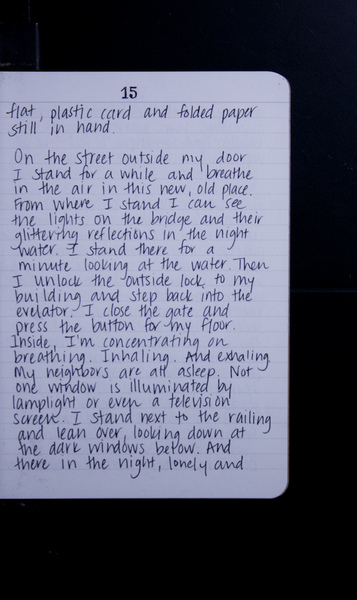 15
flat, plastic card and folded paper
still in hand.
On the street outside my door
I stand for a while and breathe
in the air in this new, old place.
From where I stand I can see
the lights on the bridge and their
glittering reflections in the night
water. I stand there for a
minute looking at the water. Then
I unlock the outside lock to my
building and step back into the
evelator. I close the gate and
press the button for my floor.
Inside, I'm concentrating on
breathing. Inhaling. And exhaling.
My neighbors are all asleep. Not
one window is illuminated by
lamplight or even a television
screen. I stand next to the railing
and lean over, looking down at
the dark windows below. And
there in the night, lonely and